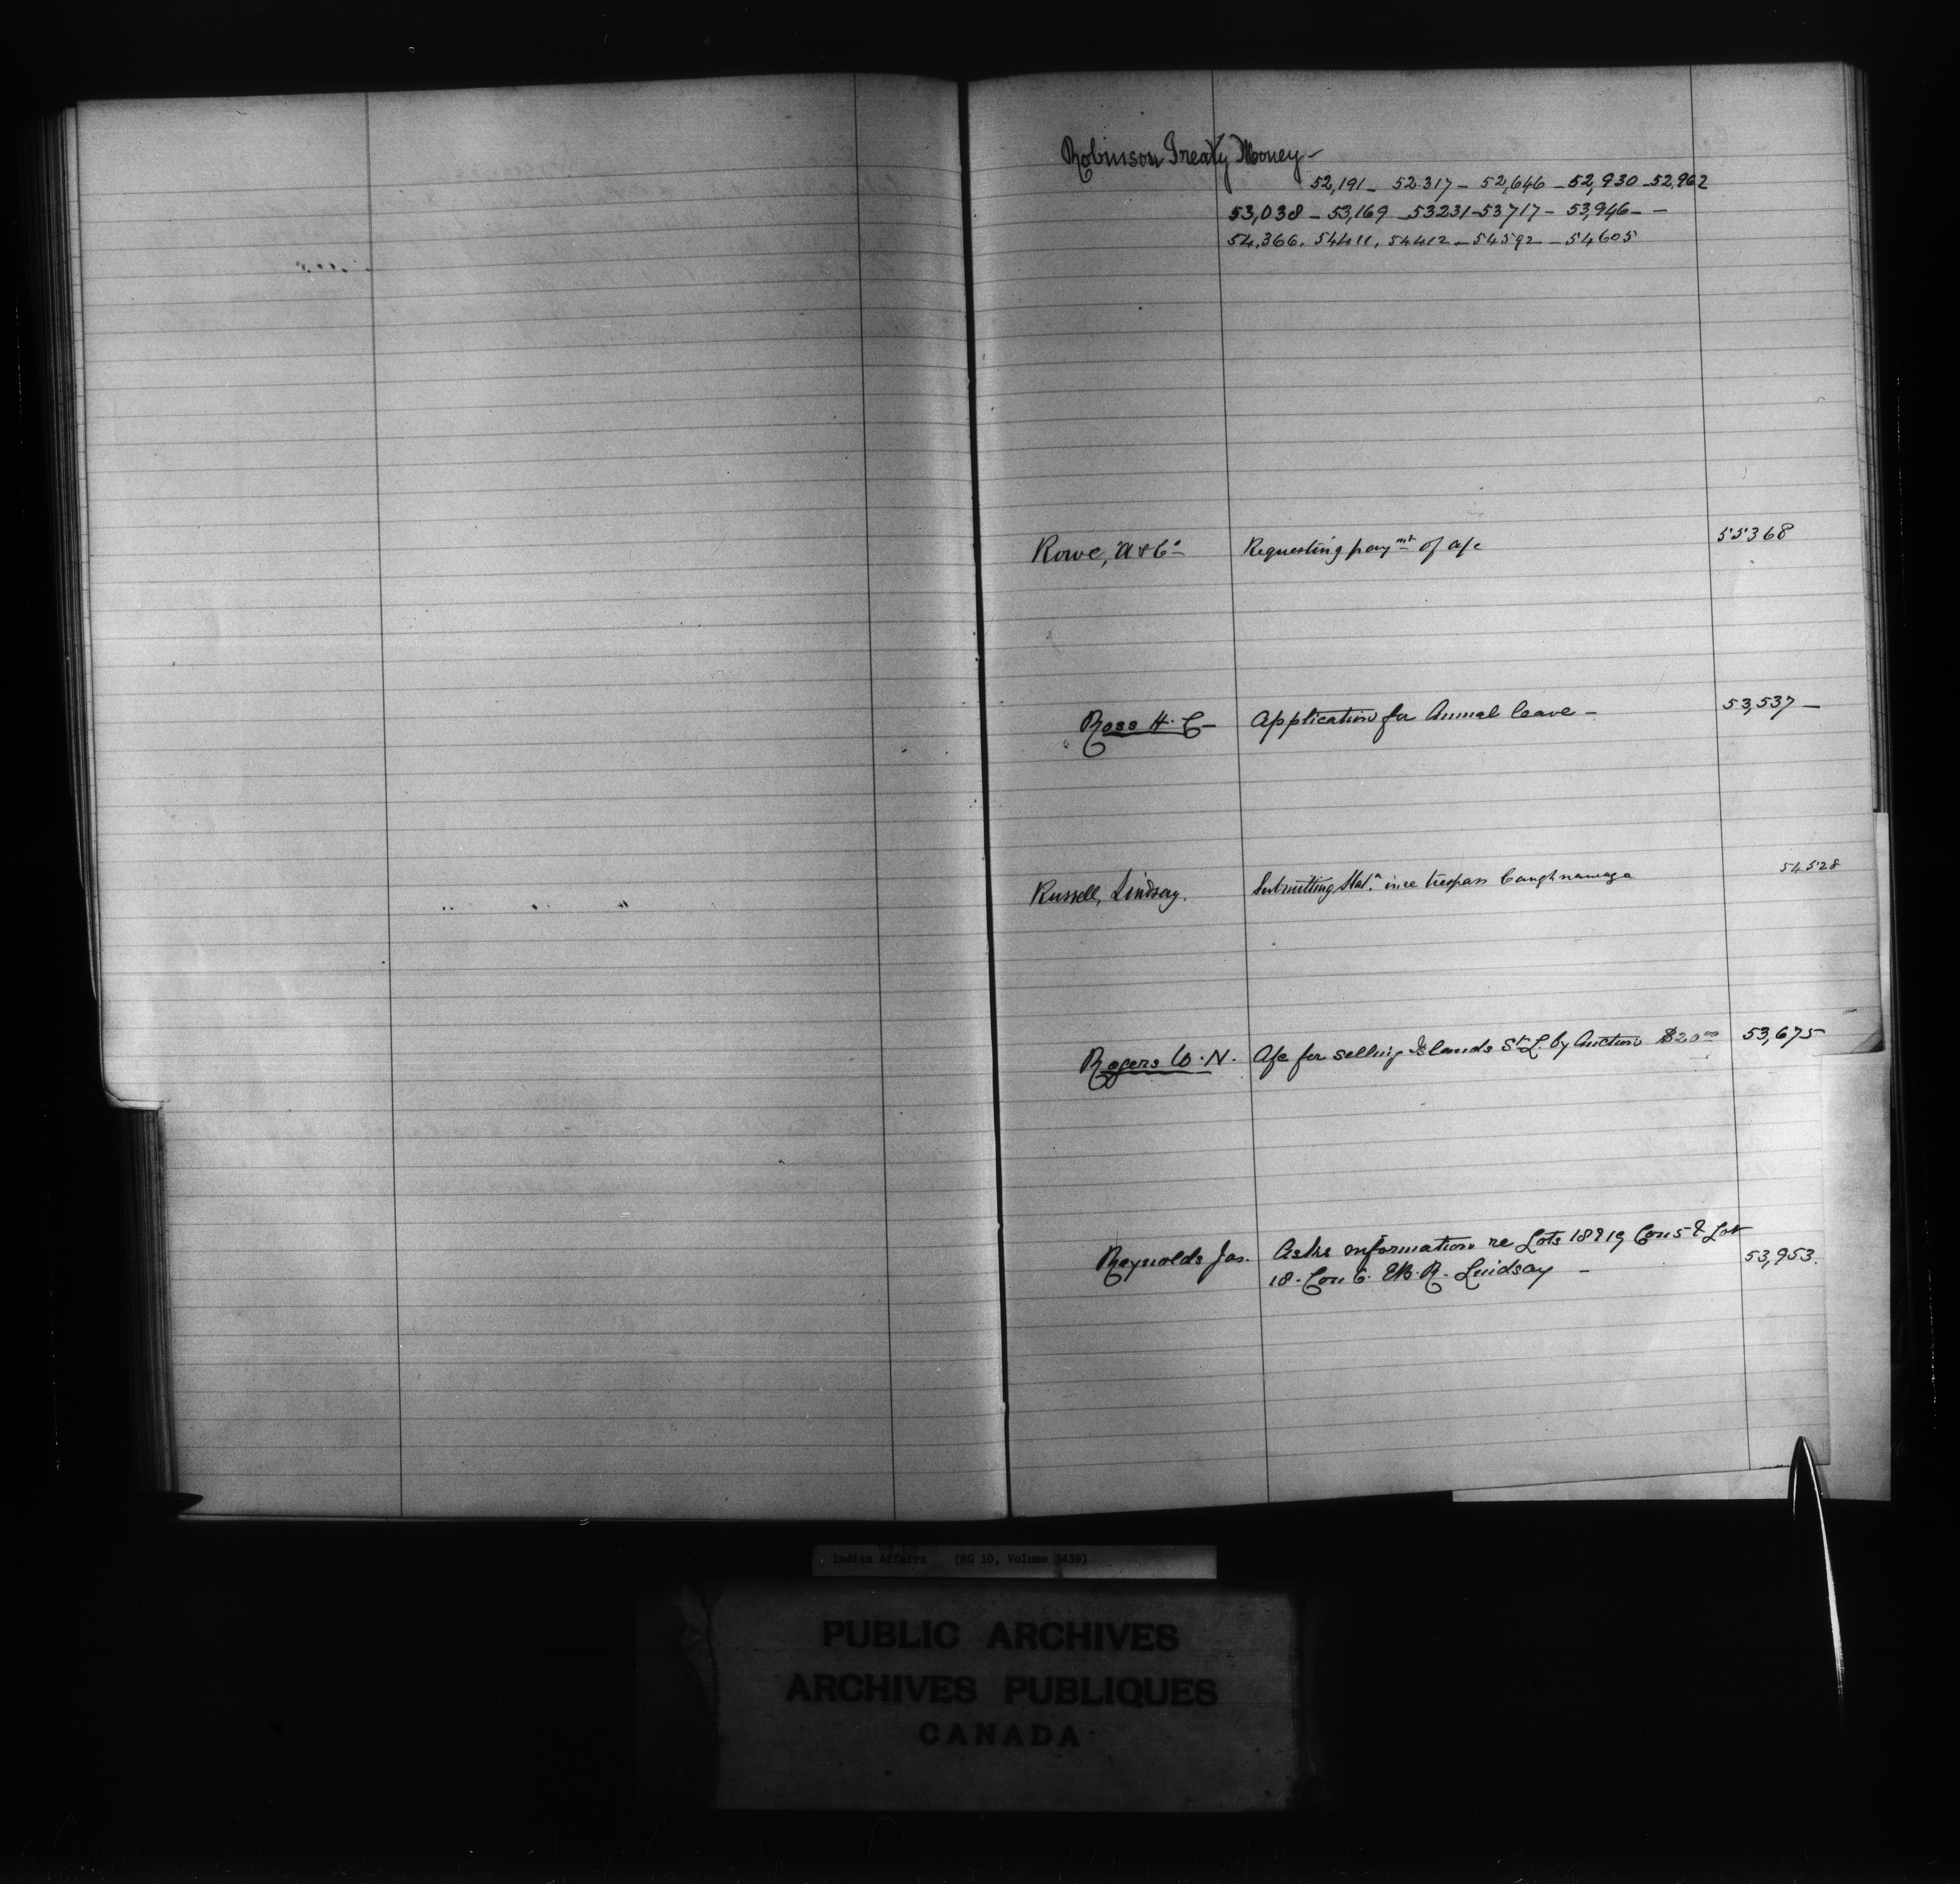 Robinson Treaty Money -
52,191 - 52.317 - 52,646 - 52,930 - 52,962
53,038 - 53,169 - 53231 - 53717 - 53,946 - -
54,366. 54411. 54412 - 54592 - 54605
Rowe, A & Co Requesting paymt of a/c 55368
Ross H. C - Application for Annual leave - 53,537 -
Russell, Lindsay. Submitting in re trespass Caughnawaga 54528
Rogers W. N. A/c for selling Islands St L. by Auction $20 00 53,675
Reynolds Jas. Asks information re Lots 18 & 19 Con 5 & Lot
18. Con 6. E.B.R. Lindsay - 53,953.
Indian Affairs (RG 10, Volume 3439)
PUBLIC ARCHIVES
ARCHIVES PUBLIQUES
CANADA